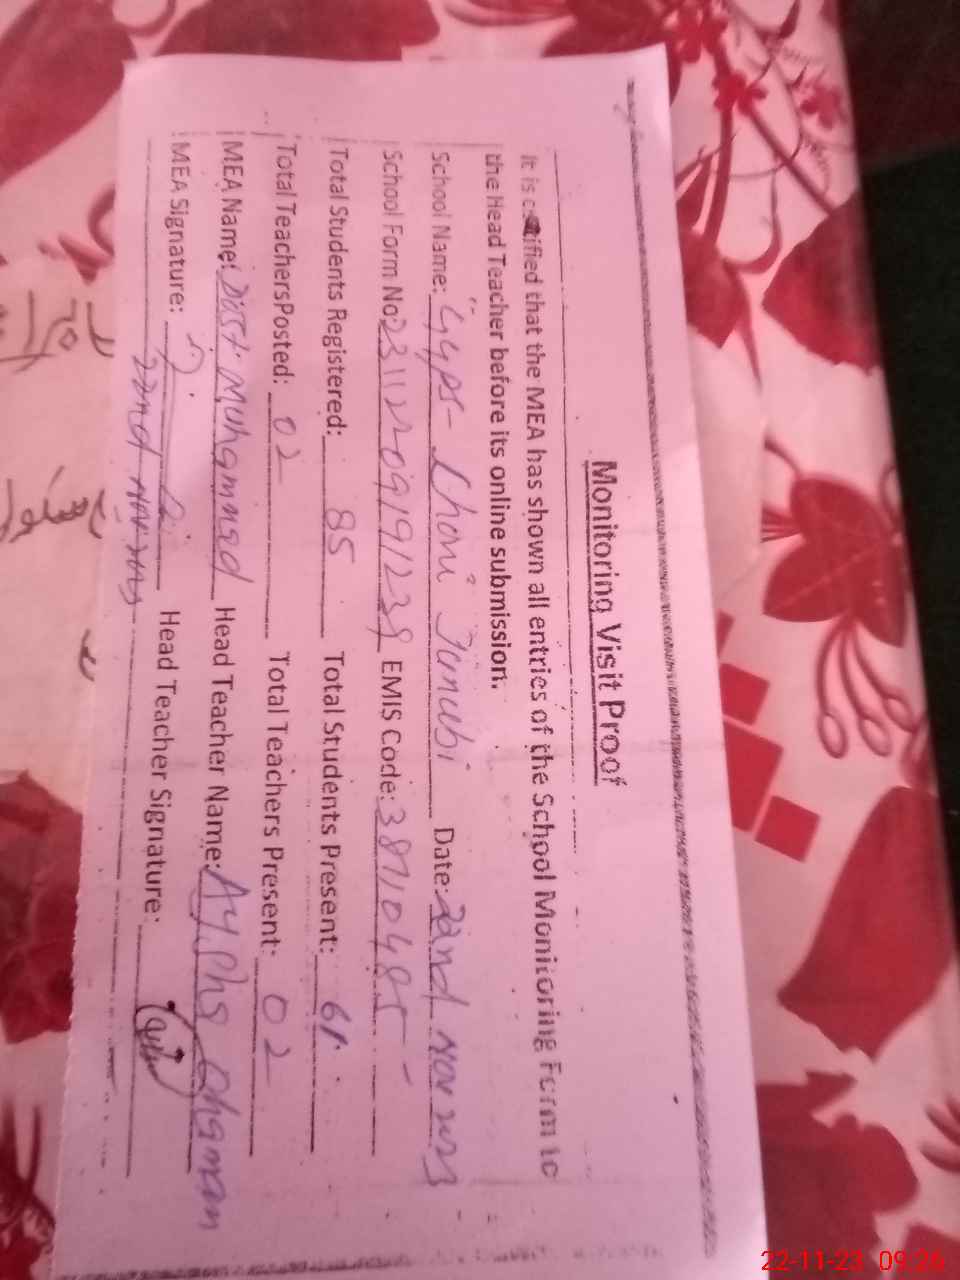 Monitoring Visit Proof
It is certified that the MEA has shown all entries of the School Monitoring Form to
the Head Teacher before its online submission.
School Name: GGPS- Lhoni Janubi Date: 22nd Nov 2023
School Form No: 231122091912 EMIS Code: 38710485-
Total Students Registered: 85 Total Students Present: 61
Total TeachersPosted: 02 Total Teachers Present: 02
MEA Name: Dost Muhammad Head Teacher Name: Ayisha
MEA Signature: Head Teacher Signature:
22nd Nov 2023
22-11-23 09:26